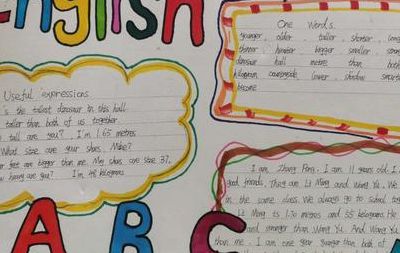 English
One Words
younger older taller shorter long
thinner heavier bigger smaller stron
dinosaur hall metre than both
kilogram countryside lower shadow smarte
become
Useful expressions
's the tallest dinosaur in this hall
taller than both of us together
tall are you? I'm 1.65 metres
What size are your shoes, Mike?
feet are bigger than mine. My shoes are size 37.
heavy are you? I'm 48 kilograms
I am Zhang Peng. I am 11 years old. I
good friends. They are Li Ming and Wang Yu. We
in the same class. We always go to school toge
Li Ming is 1.70 metres and 55 kilograms. He
and stronger than Wang Yu. And Wang Yu
than me. I am one year younger than both of
A B C